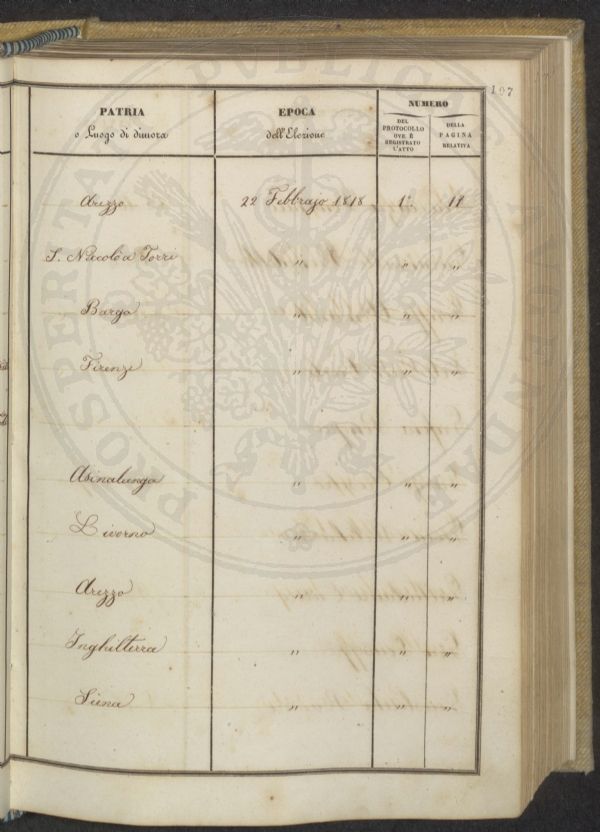 197
PATRIA
o Luogo di dimora
EPOCA
dell'Elezione
NUMERO
DEL
PROTOCOLLO
OVE È
REGISTRATO
L'ATTO
DELLA
PAGINA
RELATIVA
Arezzo 22 Febbrajo 1818 1°. 11
S. Niccolò a Torri " " "
Barga " " "
Firenze " " "
Asinalunga " " "
Livorno " " "
Arezzo " " "
Inghilterra " " "
Siena " " "
PROSPERITATI PUBLICAE AUGENDAE